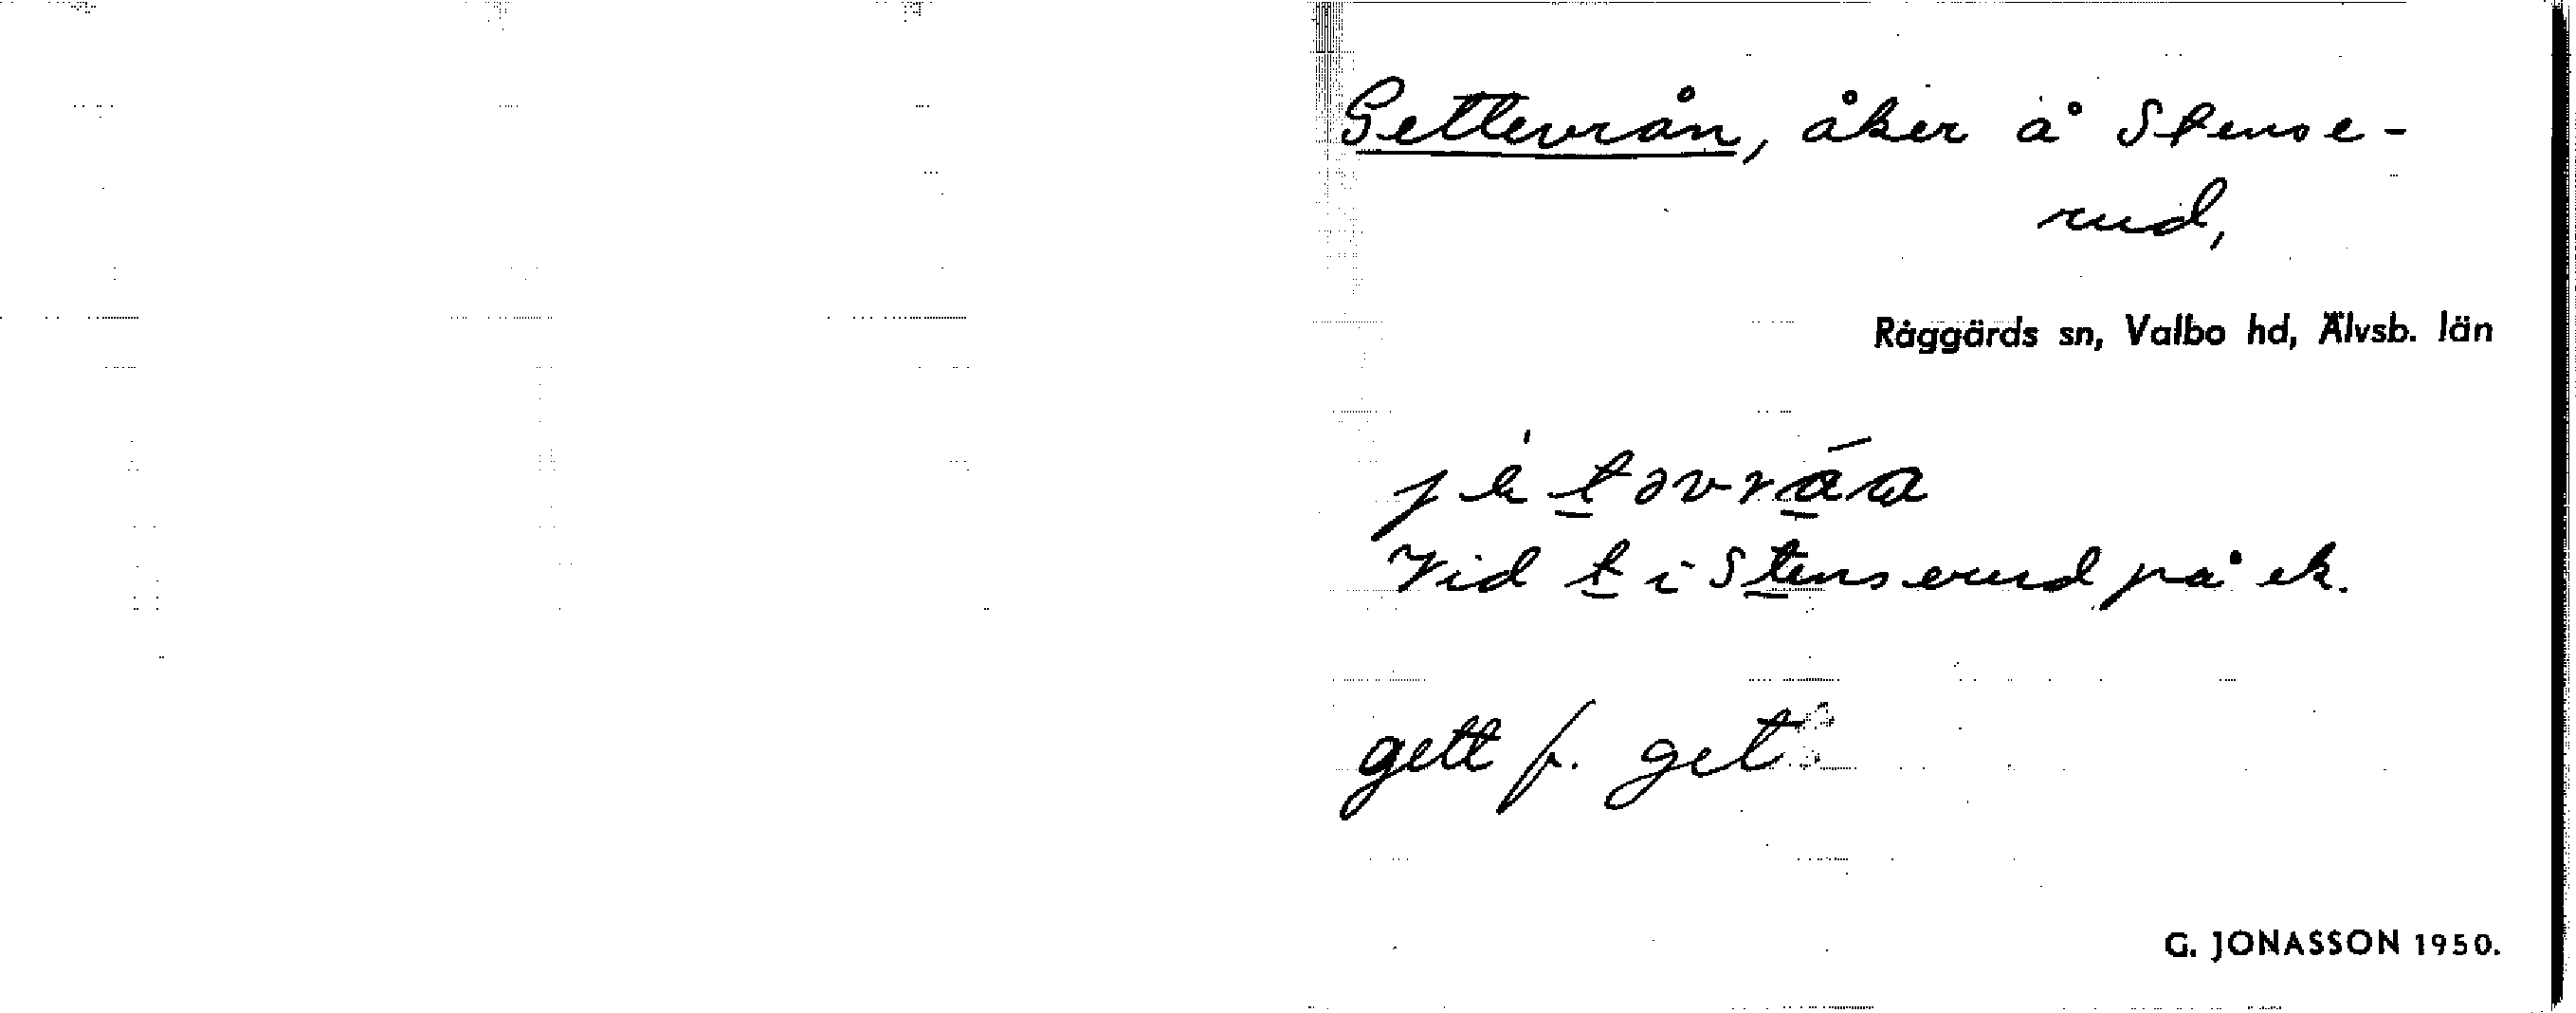 Gettevrån, åker å Stense-
rud,
Råggärds sn, Valbo hd, Älvsb. län
Vid t i Stenserud på ek.
gett f. get
G. JONASSON 1950.